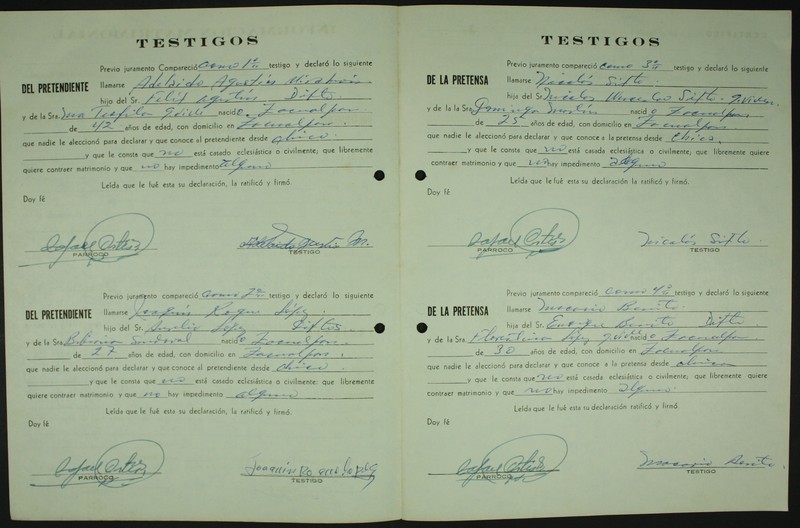 TESTIGOS
Previo juramento Compareció como 1º testigo y declaró lo siguiente
DEL PRETENDIENTE
llamarse Adelaido Agustín
hijo del Sr. Felix Agustín Difto
y de la Sra. nació
de 42 años de edad, con domicilio en
que nadie le aleccionó para declarar y que conoce al pretendiente desde chico.
y que le consta que no está casado eclesiástica o civilmente; que libremente
quiere contraer matrimonio y que no hay impedimento alguno
Leída que le fué esta su declaración, la ratificó y firmó.
Doy fé
PARROCO
TESTIGO
Previo juramento compareció como 2º testigo y declaró lo siguiente
DEL PRETENDIENTE
llamarse Joaquín Roque López
hijo del Sr. Aurelio López Diftos
y de la Sra. Bibiana Sandoval nació
de 27 años de edad, con domicilio en
que nadie le aleccionó para declarar y que conoce al pretendiente desde chico
y que le consta que no está casado eclesiástica o civilmente: que libremente
quiere contraer matrimonio y que no hay impedimento alguno
Leída que le fué esta su declaración, la ratificó y firmó.
Doy fé
PARROCO
Joaquin Roque Lopez
TESTIGO
TESTIGOS
Previo juramento compareció como 3º testigo y declaró lo siguiente
DE LA PRETENSA
llamarse Nicolás Sifto
hijo del Sr. Nicolás Sifto
y de la la Sra. Dominga nació
de 25 años de edad, con domicilio en
que nadie le aleccionó para declarar y que conoce a la pretensa desde chica.
y que le consta que no está casada eclesiástica o civilmente, que libremente quiere
contraer matrimonio y que no hay impedimento alguno
Leída que le fué esta su declaración la ratificó y firmó.
Doy fé
PARROCO
Nicolás Sifto.
TESTIGO
Previo juramento compareció como 4º testigo y declaró lo siguiente
DE LA PRETENSA
llamarse Macario Benito.
hijo del Sr. Benito Difto
y de la Sra. Florentina nació
de 30 años de edad, con domicilio en
que nadie le aleccionó para declarar y que conoce a la pretensa desde chica
y que le consta que no está casada eclesiástica o civilmente; que libremente quiere
contraer matrimonio y que no hay impedimento alguno.
Leída que le fué esta su declaración la ratificó y firmó.
Doy fé
PARROCO
Macario Benito.
TESTIGO